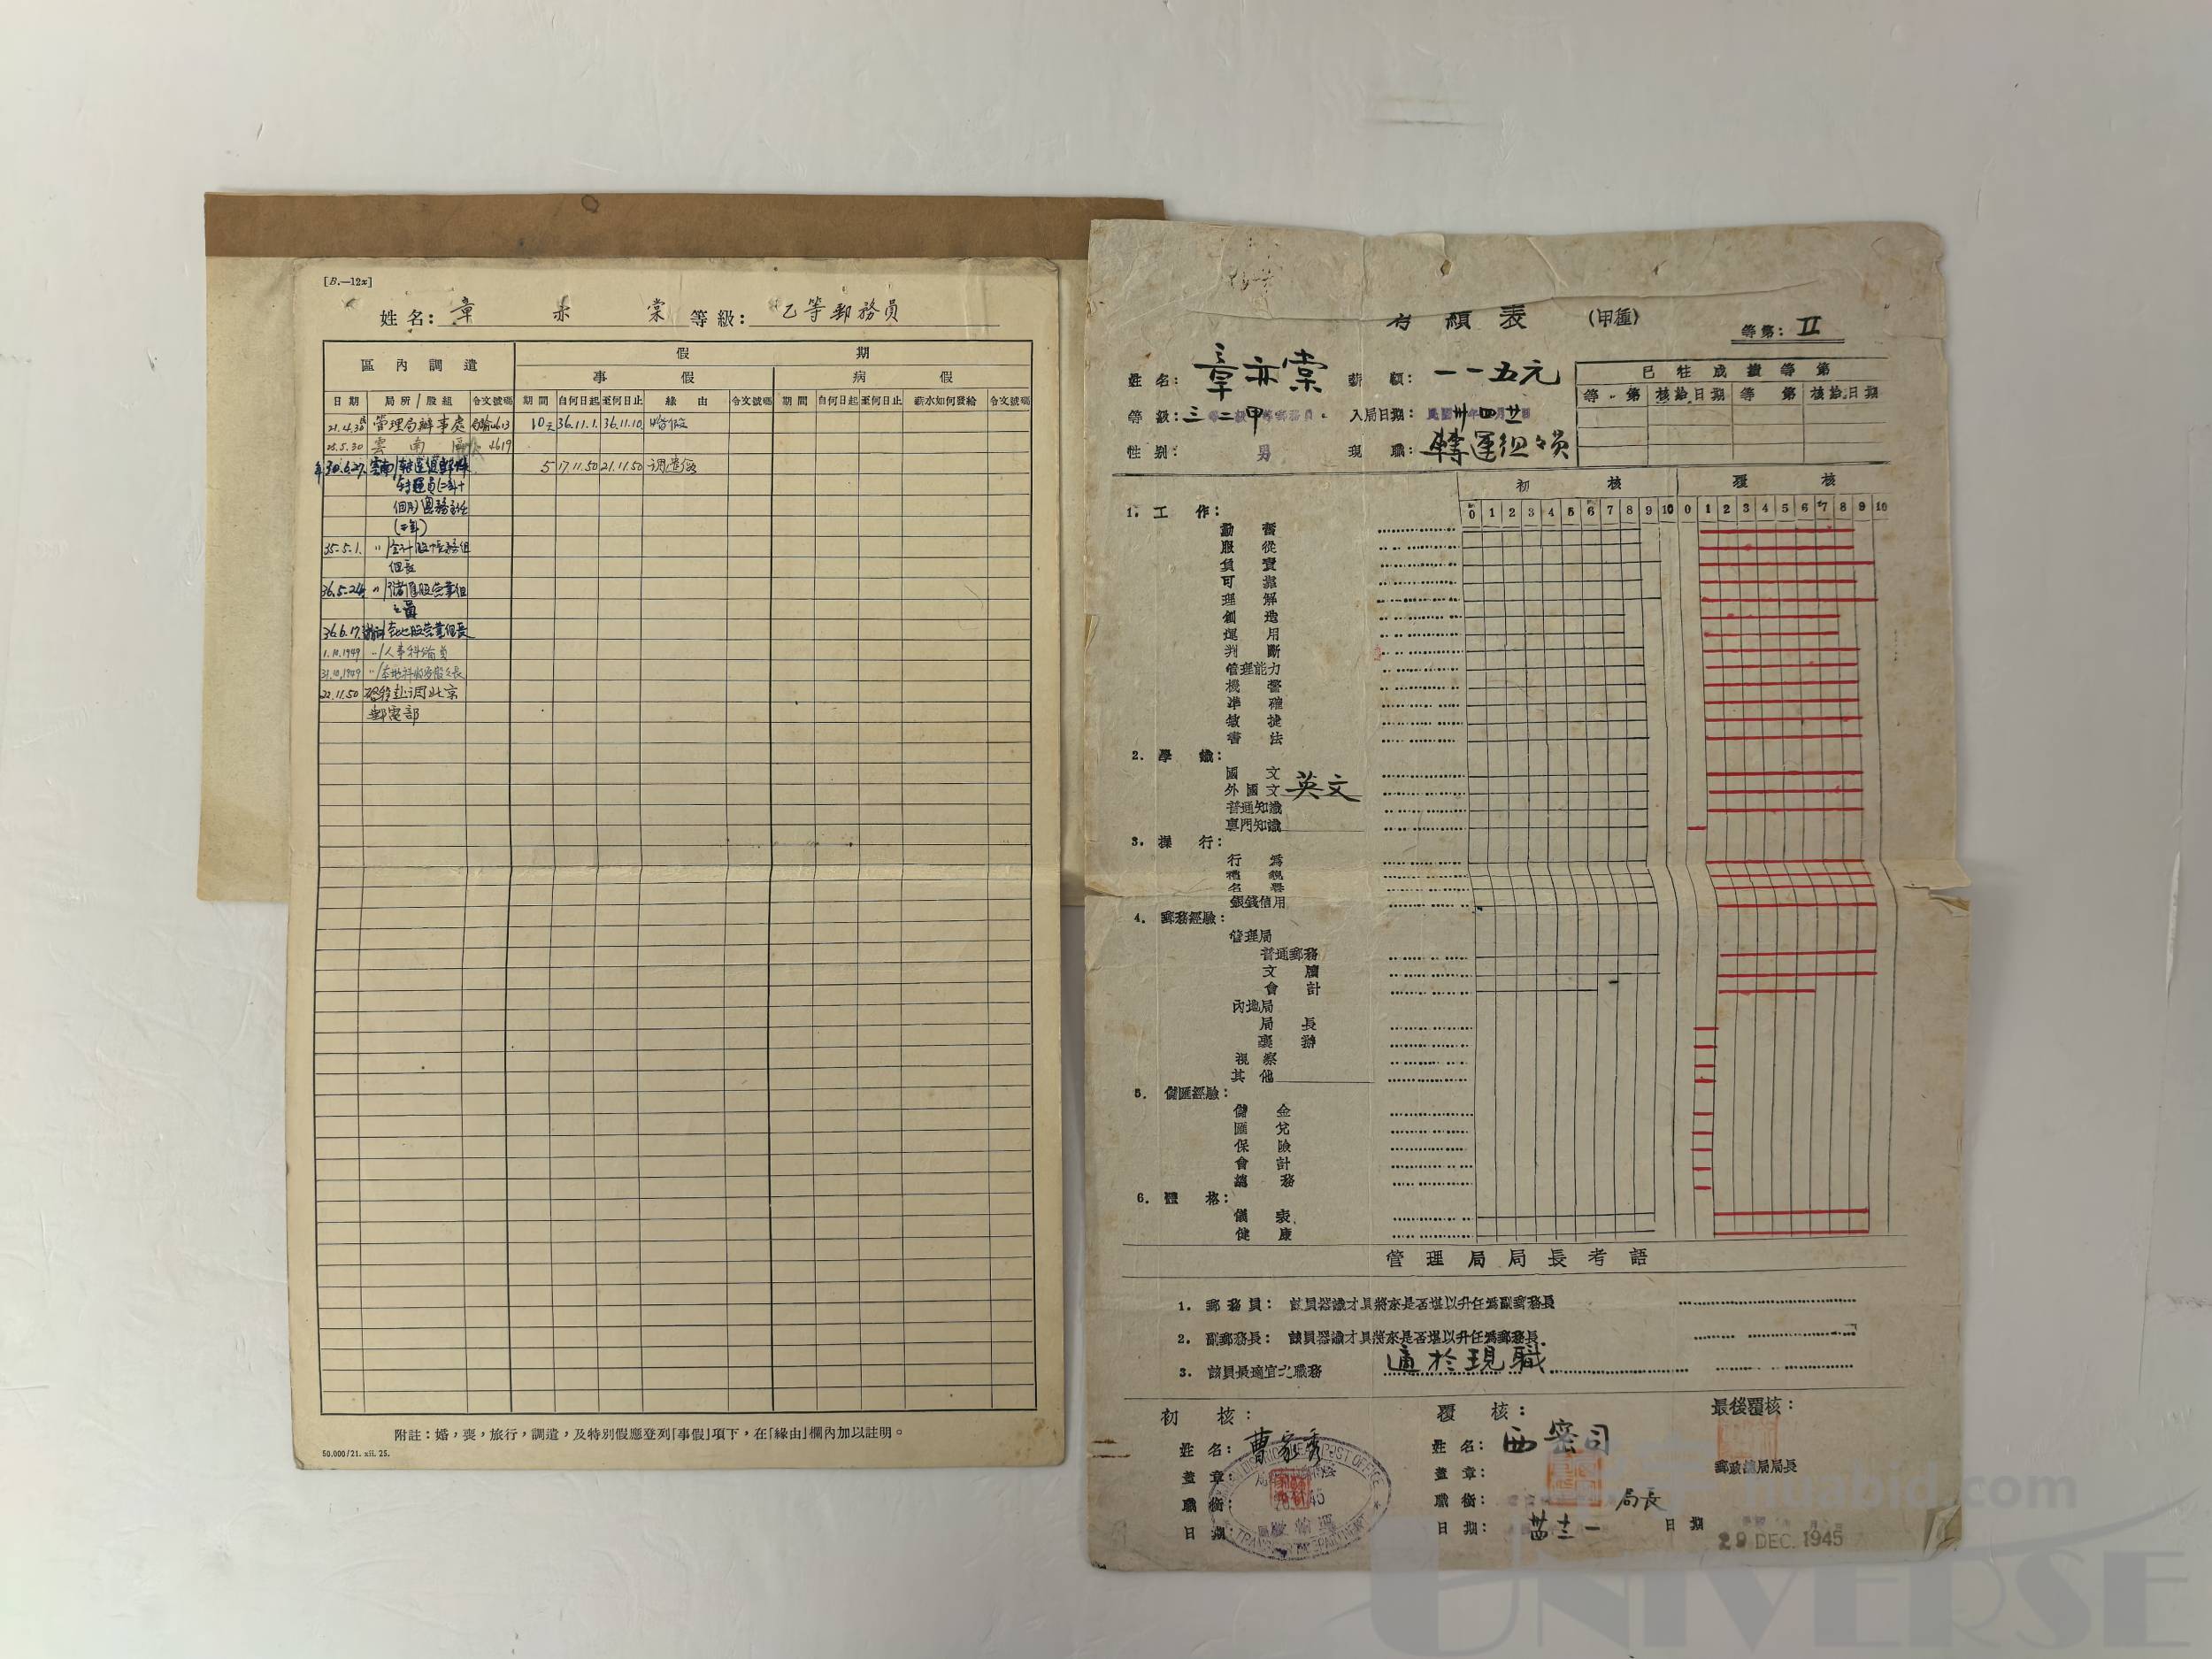 [B.—12x]
姓名: 章亦棠 等級: 乙等郵務員
區內調遣 假期
事假 病假
日期 局所/股組 令文號碼 期間 自何日起 至何日止 緣由 令文號碼 期間 自何日起 至何日止 薪水如何發給 令文號碼
21.4.30 管理局辦事處 10天 36.11.1. 36.11.10. 婚假
25.5.30 雲南 4619
30.6.27. 雲南 5 17.11.50 21.11.50 调遣假
35.5.1. 〃/会计股
組長
36.5.24. 〃/儲匯股營業組
36.6.17.
1.10.1949 〃/人事科
31.10.1949
22.11.50 赴调北京
郵電部
附註:婚,喪,旅行,調遣,及特別假應登列「事假」項下,在「緣由」欄內加以註明。
50.000/21. xii. 25.
考績表 (甲種)
等第: II
姓名: 章亦棠 薪額: 一一五元
已往成績等第
等第 核給日期 等第 核給日期
等級: 三二甲 入局日期: 卅四廿
性別: 男 現職: 轉運組組員
初核 覆核
0 1 2 3 4 5 6 7 8 9 10 0 1 2 3 4 5 6 7 8 9 10
1. 工作:
勤奮
服從
負責
可靠
理解
創造
運用
判斷
管理能力
機警
準確
敏捷
書法
2. 學識:
國文
外國文 英文
普通知識
專門知識
3. 操行:
行為
名譽
銀錢信用
4. 郵務經驗:
管理局
普通郵務
文牘
會計
內地局
局長
襄辦
視察
其他
5. 儲匯經驗:
儲金
匯兌
保險
會計
總務
6. 體格:
儀表
健康
管理局局長考語
1. 郵務員: 該員器識才具將來是否堪以升任為副郵務長
2. 副郵務長: 該員器識才具將來是否堪以升任為郵務長
3. 該員最適宜之職務 適於現職
初核: 覆核: 最後覆核:
姓名: 曹家秀 姓名: 西密司
蓋章: 蓋章: 郵政總局局長
職銜: 職銜: 局長
日期: 日期: 日期
29 DEC. 1945
UNIVERSE